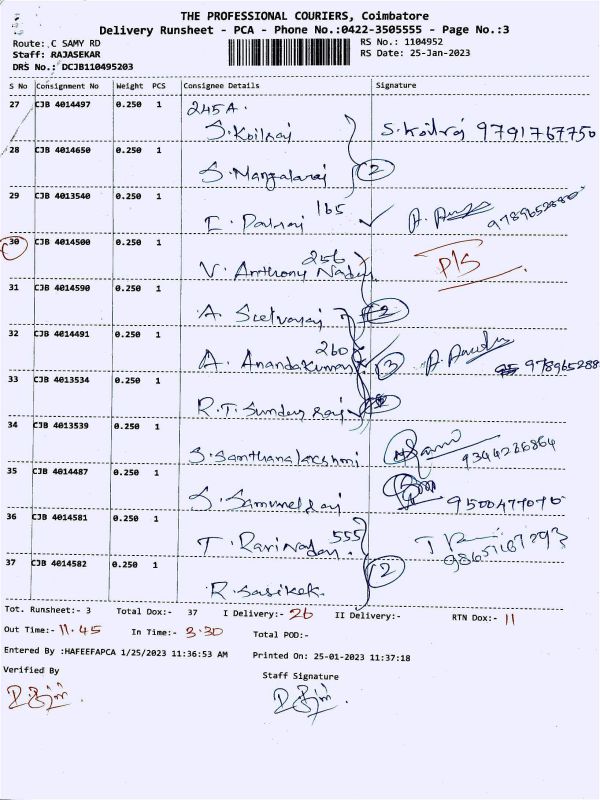 THE PROFESSIONAL COURIERS, Coimbatore
Delivery Runsheet - PCA - Phone No.:0422-3505555 - Page No.:3
Route: C SAMY RD
RS No.: 1104952
Staff: RAJASEKAR
RS Date: 25-Jan-2023
DRS No.: DCJB110495203
S No Consignment No Weight PCS Consignee Details Signature
27 CJB 4014497 0.250 1 245A.
S. Koilraj S. Koilraj 9791767750
28 CJB 4014650 0.250 1
S. Mangalaraj 2
29 CJB 4013540 0.250 1 165
I. Dalraj
30 CJB 4014500 0.250 1 256 P/S
V. Anthony Nadar
31 CJB 4014590 0.250 1
A. Selvaraj 2
32 CJB 4014491 0.250 1 260
A. Anandakumar 3 978965288
33 CJB 4013534 0.250 1
R.T. Sundar raj
34 CJB 4013539 0.250 1
S. Santhanalakshmi 9344226864
35 CJB 4014487 0.250 1
S. Samuvel raj
36 CJB 4014581 0.250 1 555
T. Ravi Nadar.
37 CJB 4014582 0.250 1 2
R. Sasikek.
Tot. Runsheet:- 3 Total Dox:- 37 I Delivery:- 26 II Delivery:- RTN Dox:- 11
Out Time:- 11.45 In Time:- 3.30 Total POD:-
Entered By :HAFEEFAPCA 1/25/2023 11:36:53 AM Printed On: 25-01-2023 11:37:18
Verified By Staff Signature